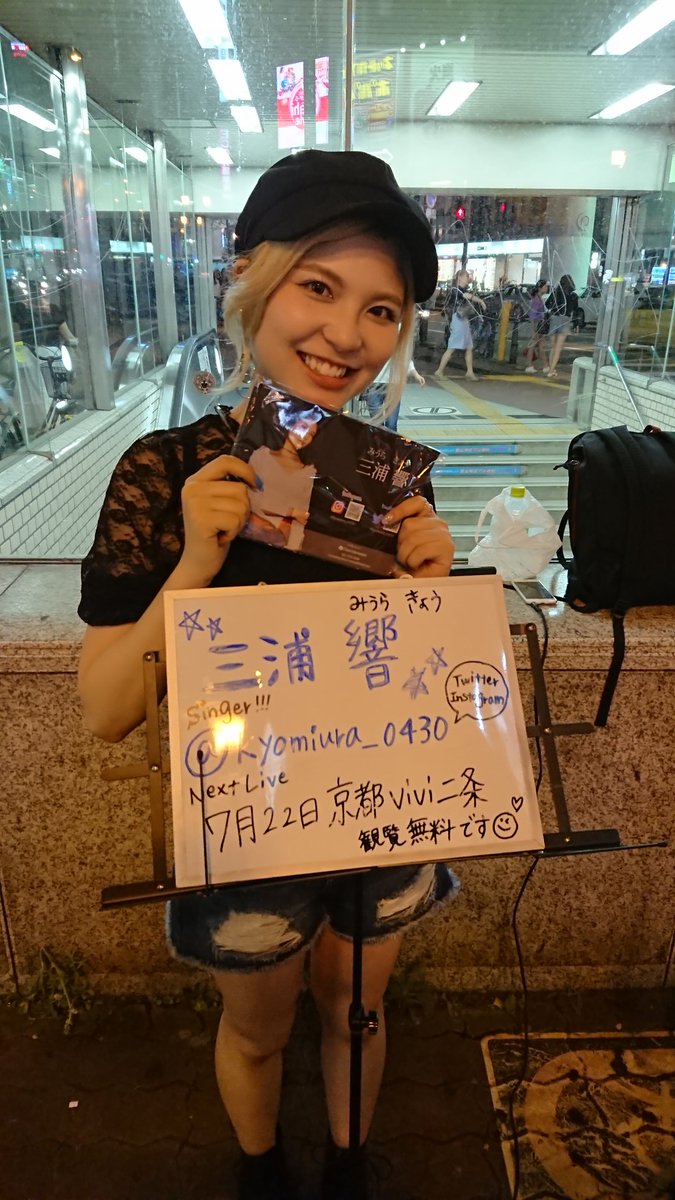 みうら
三浦 響
みうら きょう
三浦 響
Singer!!!
Twitter
Instagram
@kyomiura_0430
Next Live
7月22日 京都 vivi二条
観覧無料です